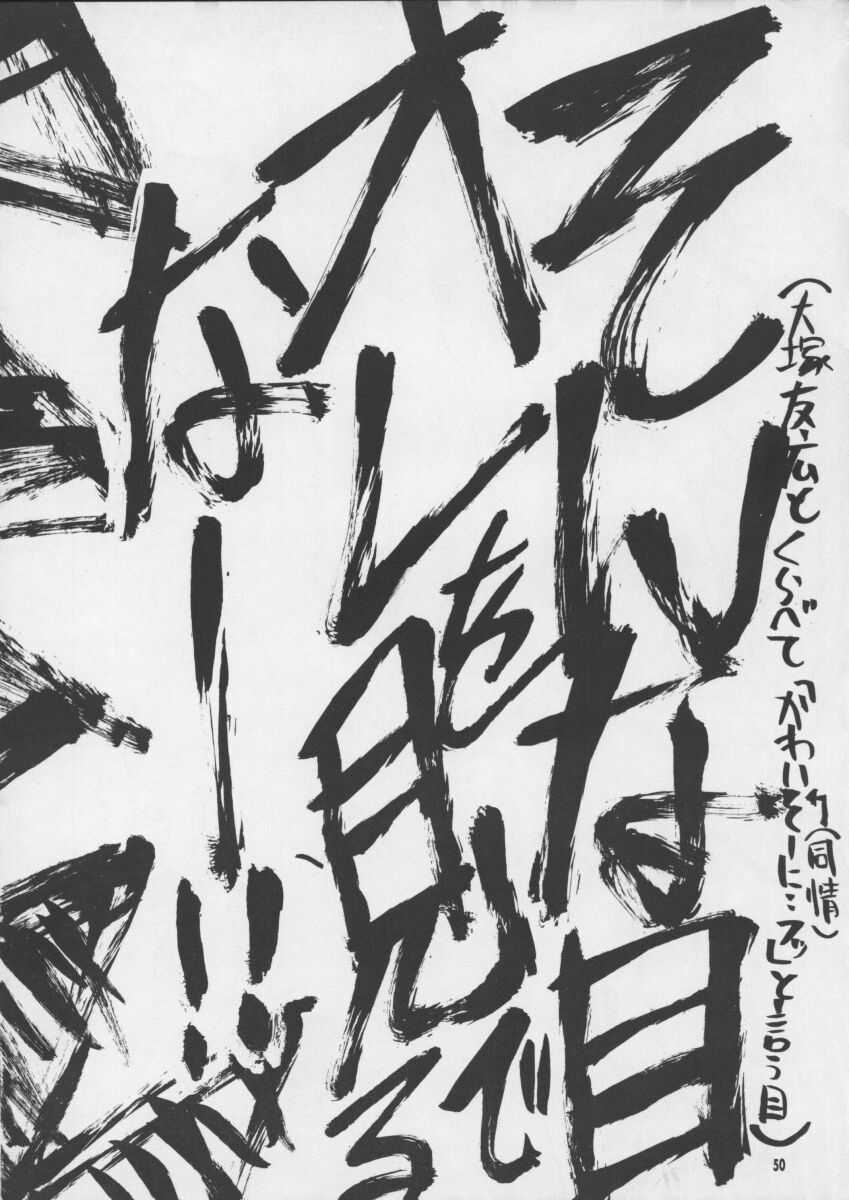 そんな目で
オレを見る
なー!!
(大塚友広とくらべて「かわいそーに…フッ」と言う目)
(同情)
50